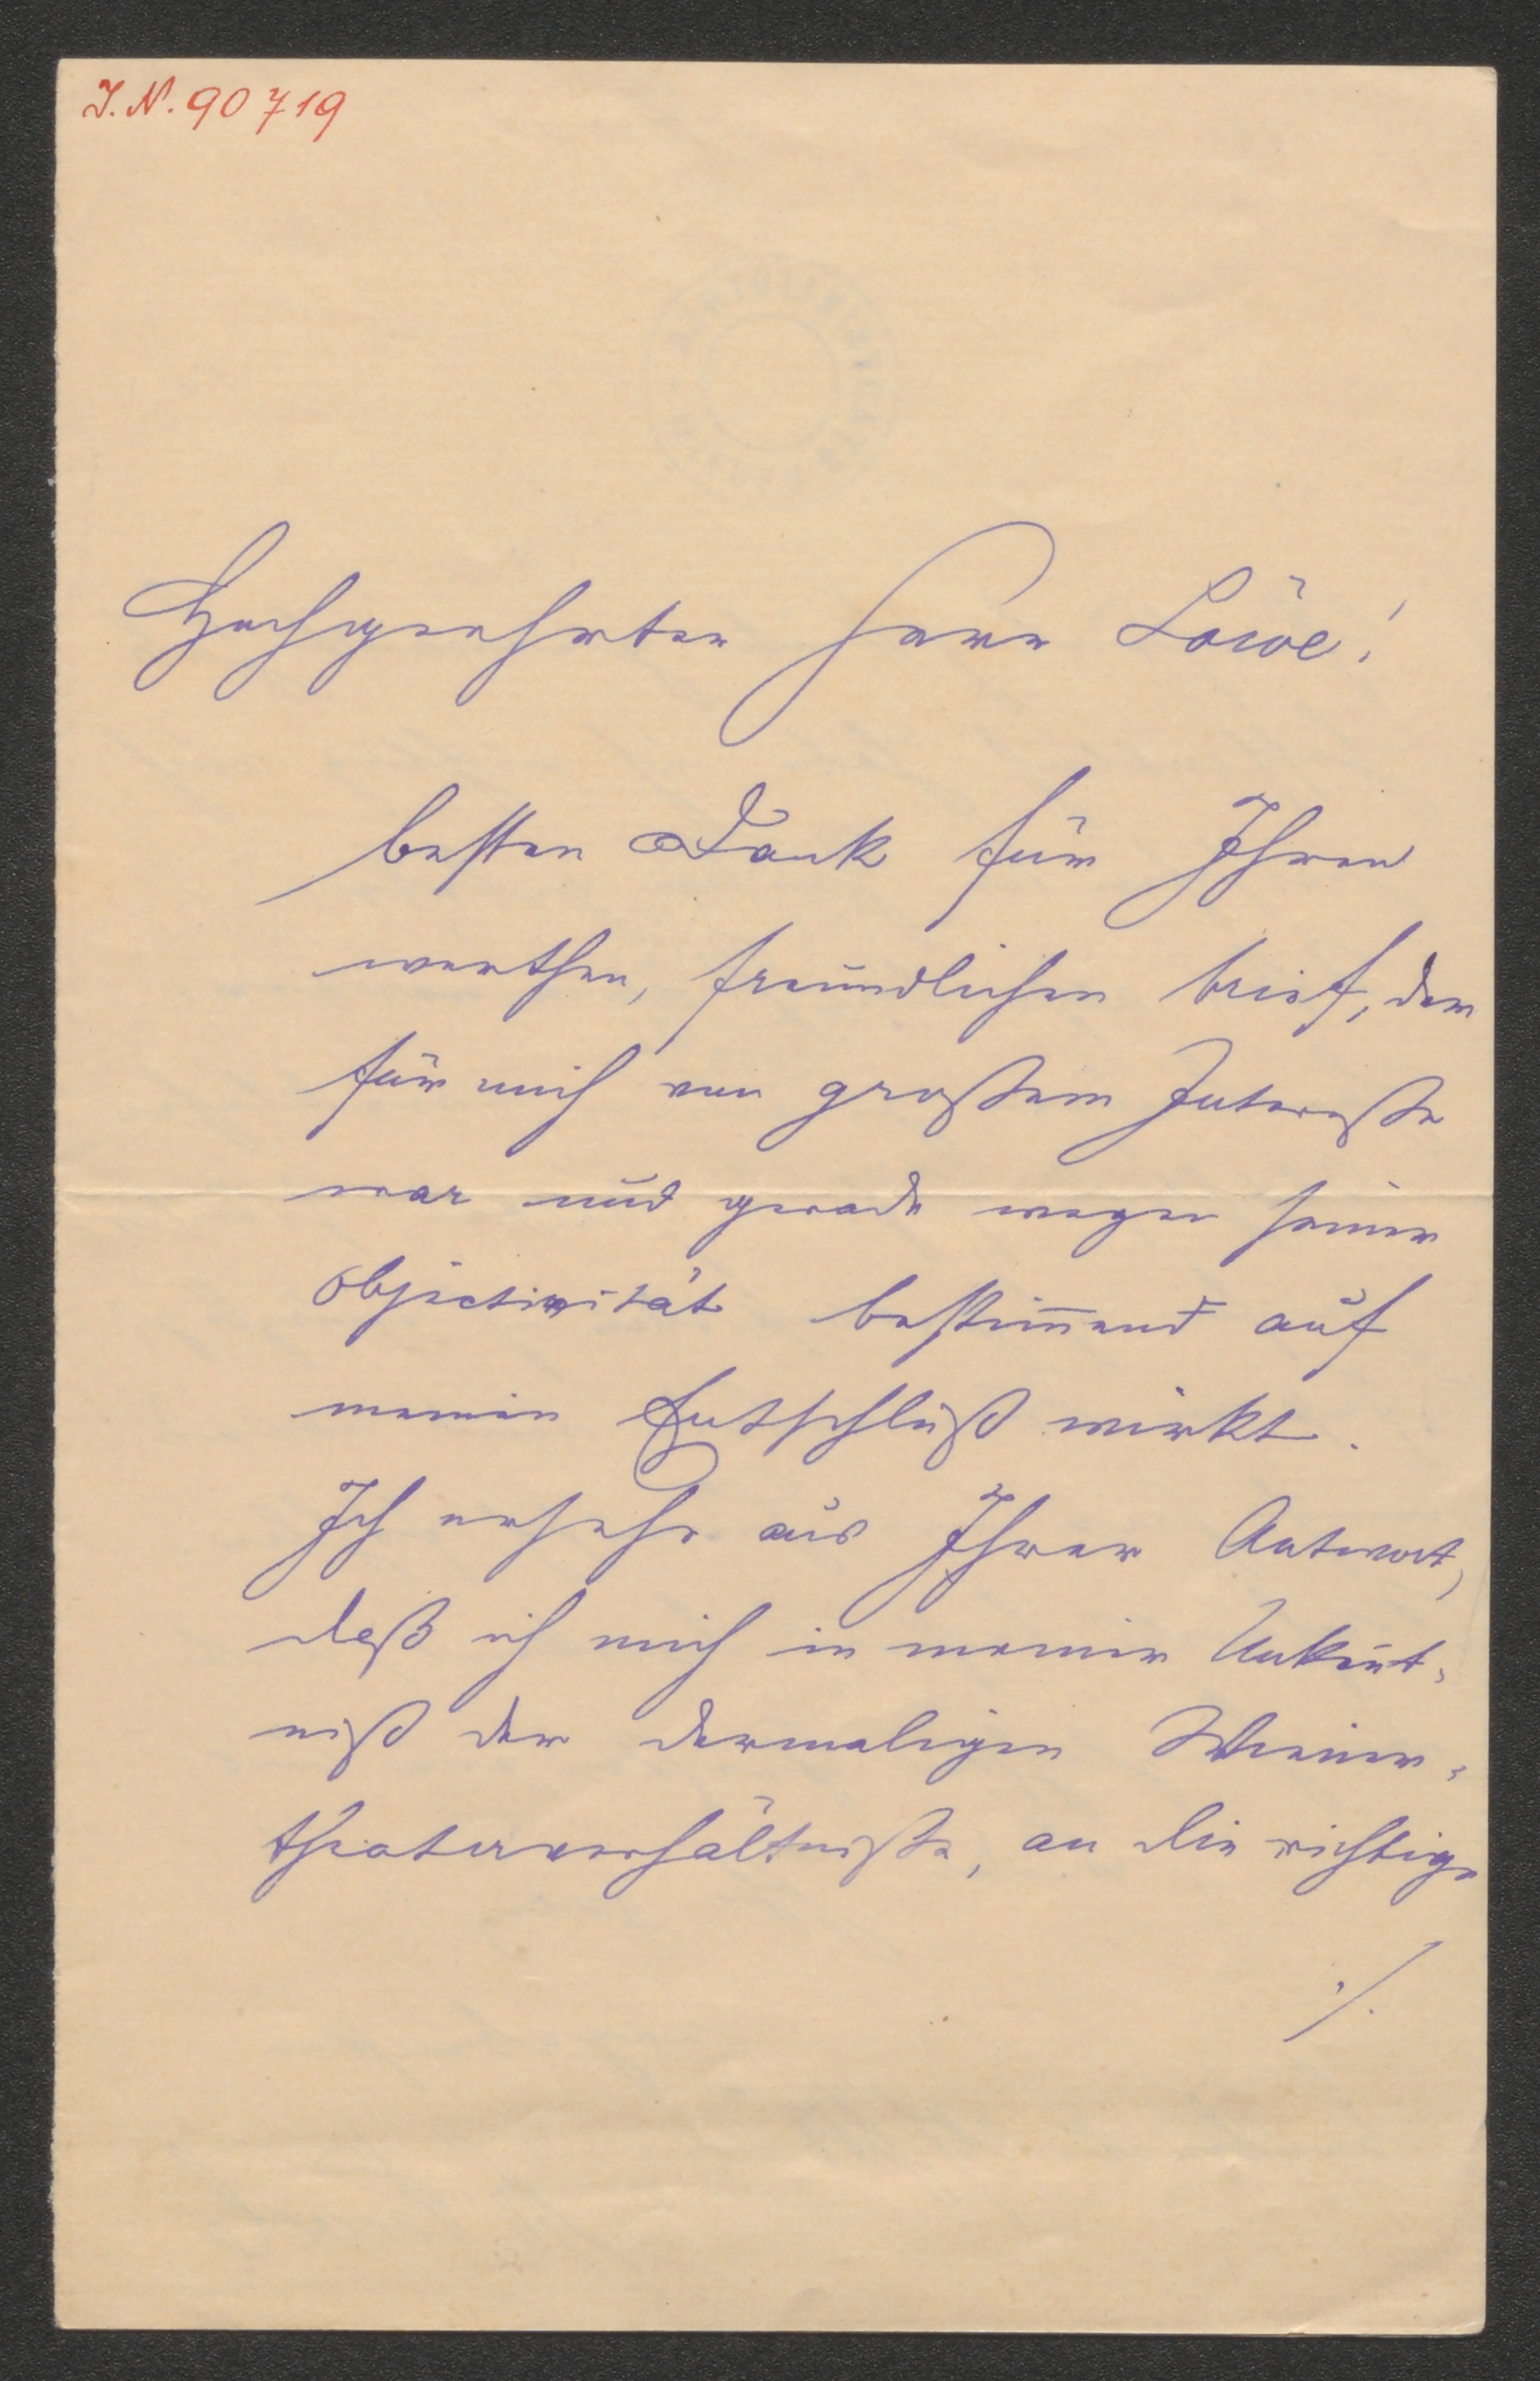 I. N. 90719
Hochgeehrter Herr Löwe!
besten Dank für Ihren
werthen, freundlichen Brief, der
für mich von großem Intereße
war und gerade wegen seiner
Objectivität bestim̄end auf
meinen Entschluß wirkt.
Ich ersehe aus Ihrer Antwort,
daß ich mich in meiner Unken̄t-
niß der dermaligen Wiener-
theaterverhältniße, an die richtige
./.